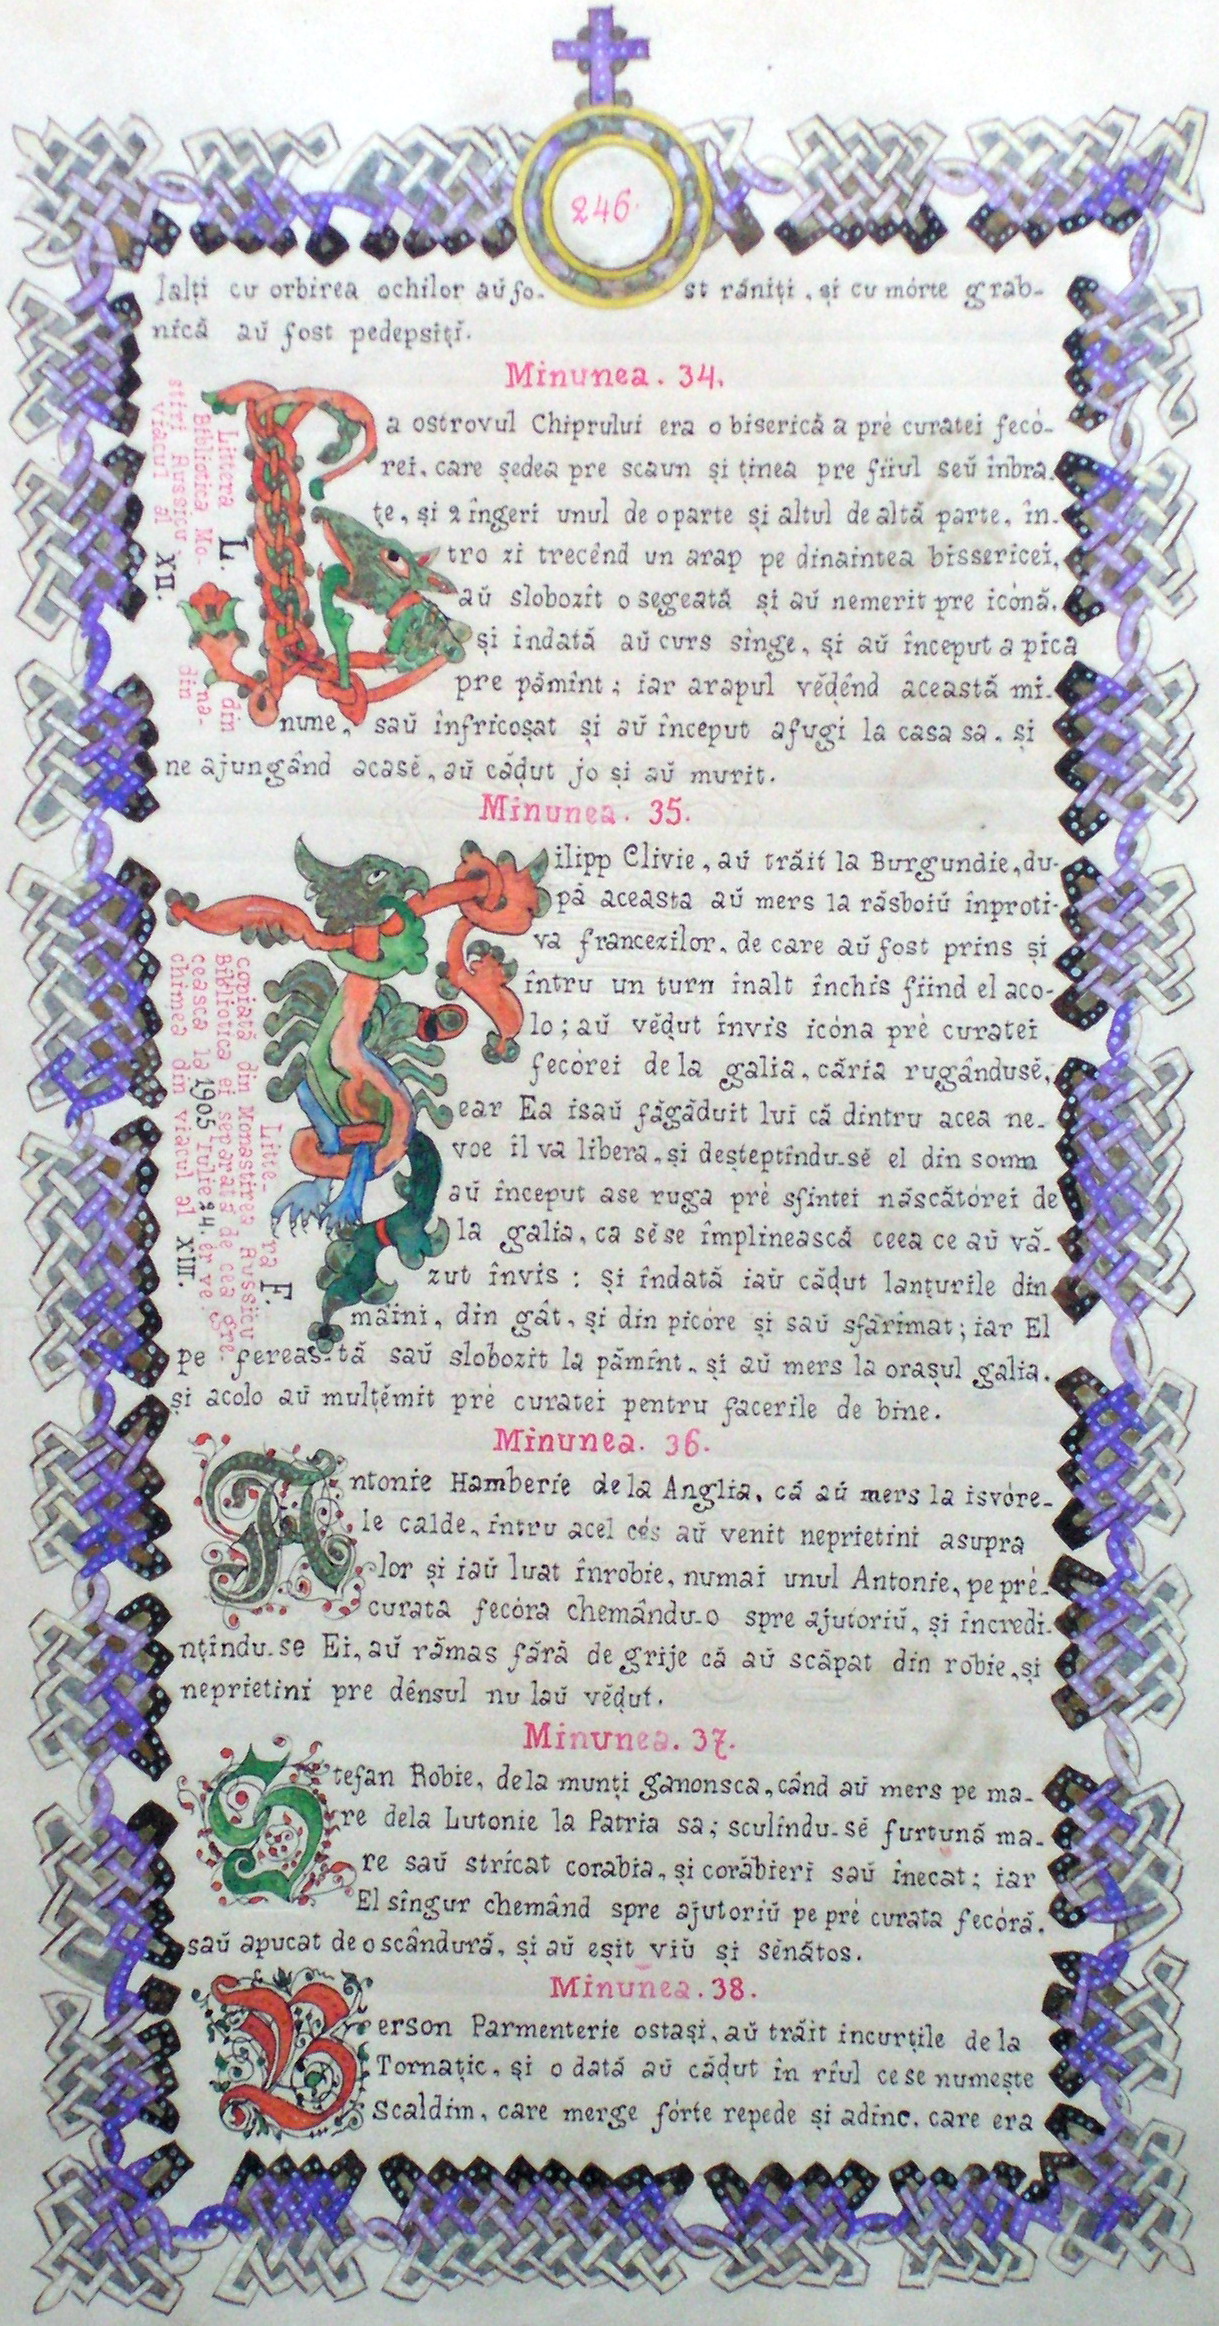 246.
Ialți cu orbirea ochilor aŭ fo- st răniți, și cu mórte grab-
nică aŭ fost pedepsiți.
Minunea. 34.
La ostrovul Chiprului era o biserică a pré curatei fecó-
rei, care ședea pre scaun și ținea pre fiiul seŭ înbra.
țe, și 2 îngeri unul de o parte și altul de altă parte, în-
tro zi trecênd un arap pe dinaintea bissericei,
aŭ slobozit o segeată și aŭ nemerit pre icónă,
și indată aŭ curs sînge, și aŭ început a pica
pre pămînt; iar arapul vĕḑênd această mi-
nune, saŭ înfricoșat și aŭ început afugi la casa sa, și
ne ajungând acasĕ, aŭ cáḑut jo și aŭ murit.
Littera L.
din
Biblioteca Mo-
na-
stiri Russicu
din
viacul al XII.
Minunea. 35.
Filipp Clivie, aŭ trăit la Burgundie, du-
pă aceasta aŭ mers la răsboiŭ înproti-
va francezilor, de care aŭ fost prins și
întru un turn inalt închis fiind el aco-
lo; aŭ vĕḑut învis icóna pré curatei
fecórei de la galia, căria rugândusĕ,
ear Ea isaŭ făgăduit lui că dintru acea ne-
voe il va libera, și deșteptîndu-sĕ el din somn
aŭ început ase ruga pré sfintei născĕtórei de
la galia, ca sĕse împlinească ceea ce aŭ vă-
zut învis: și îndată iaŭ căḑut lanțurile din
mâini, din gât, și din picóre și saŭ sfărîmat; iar El
pe fereastă saŭ slobozit la pămînt, și aŭ mers la orașul galia.
și acolo aŭ mulțĕmit pré curatei pentru facerile de bine.
Litte-
ra F.
copiată din Monastirea Russicu
Biblioteca ei separată de cea gre-
ceasca la 1905 Iulie 24. er ve.
chimea din viacul al XIII.
Minunea. 36.
Antonie Hamberie dela Anglia, că aŭ mers la isvóre-
le calde, întru acel cés aŭ venit neprietini asupra
lor și iaŭ luat înrobie, numai unul Antonie, pe pré-
curata fecóra chemându-o spre ajutoriŭ, și încredi-
nțîndu-se Ei, aŭ rămas fără de grije că aŭ scăpat din robie, și
neprietini pre dênsul nu laŭ vĕḑut.
Minunea. 37.
Stefan Robie, dela munți ganonsca, când aŭ mers pe ma-
re dela Lutonie la Patria sa; sculîndu-sĕ furtună ma-
re saŭ stricat corabia, și corăbieri saŭ înecat; iar
El sîngur chemând spre ajutoriŭ pe pré curata fecóră,
saŭ apucat de o scândură, și aŭ eșit viŭ și sĕnătos.
Minunea. 38.
Berson Parmenterie ostași, aŭ trăit incurțile dela
Tornațic, și o dată aŭ căḑut în rîul ce se numește
Scaldim, care merge fórte repede și adînc, care era